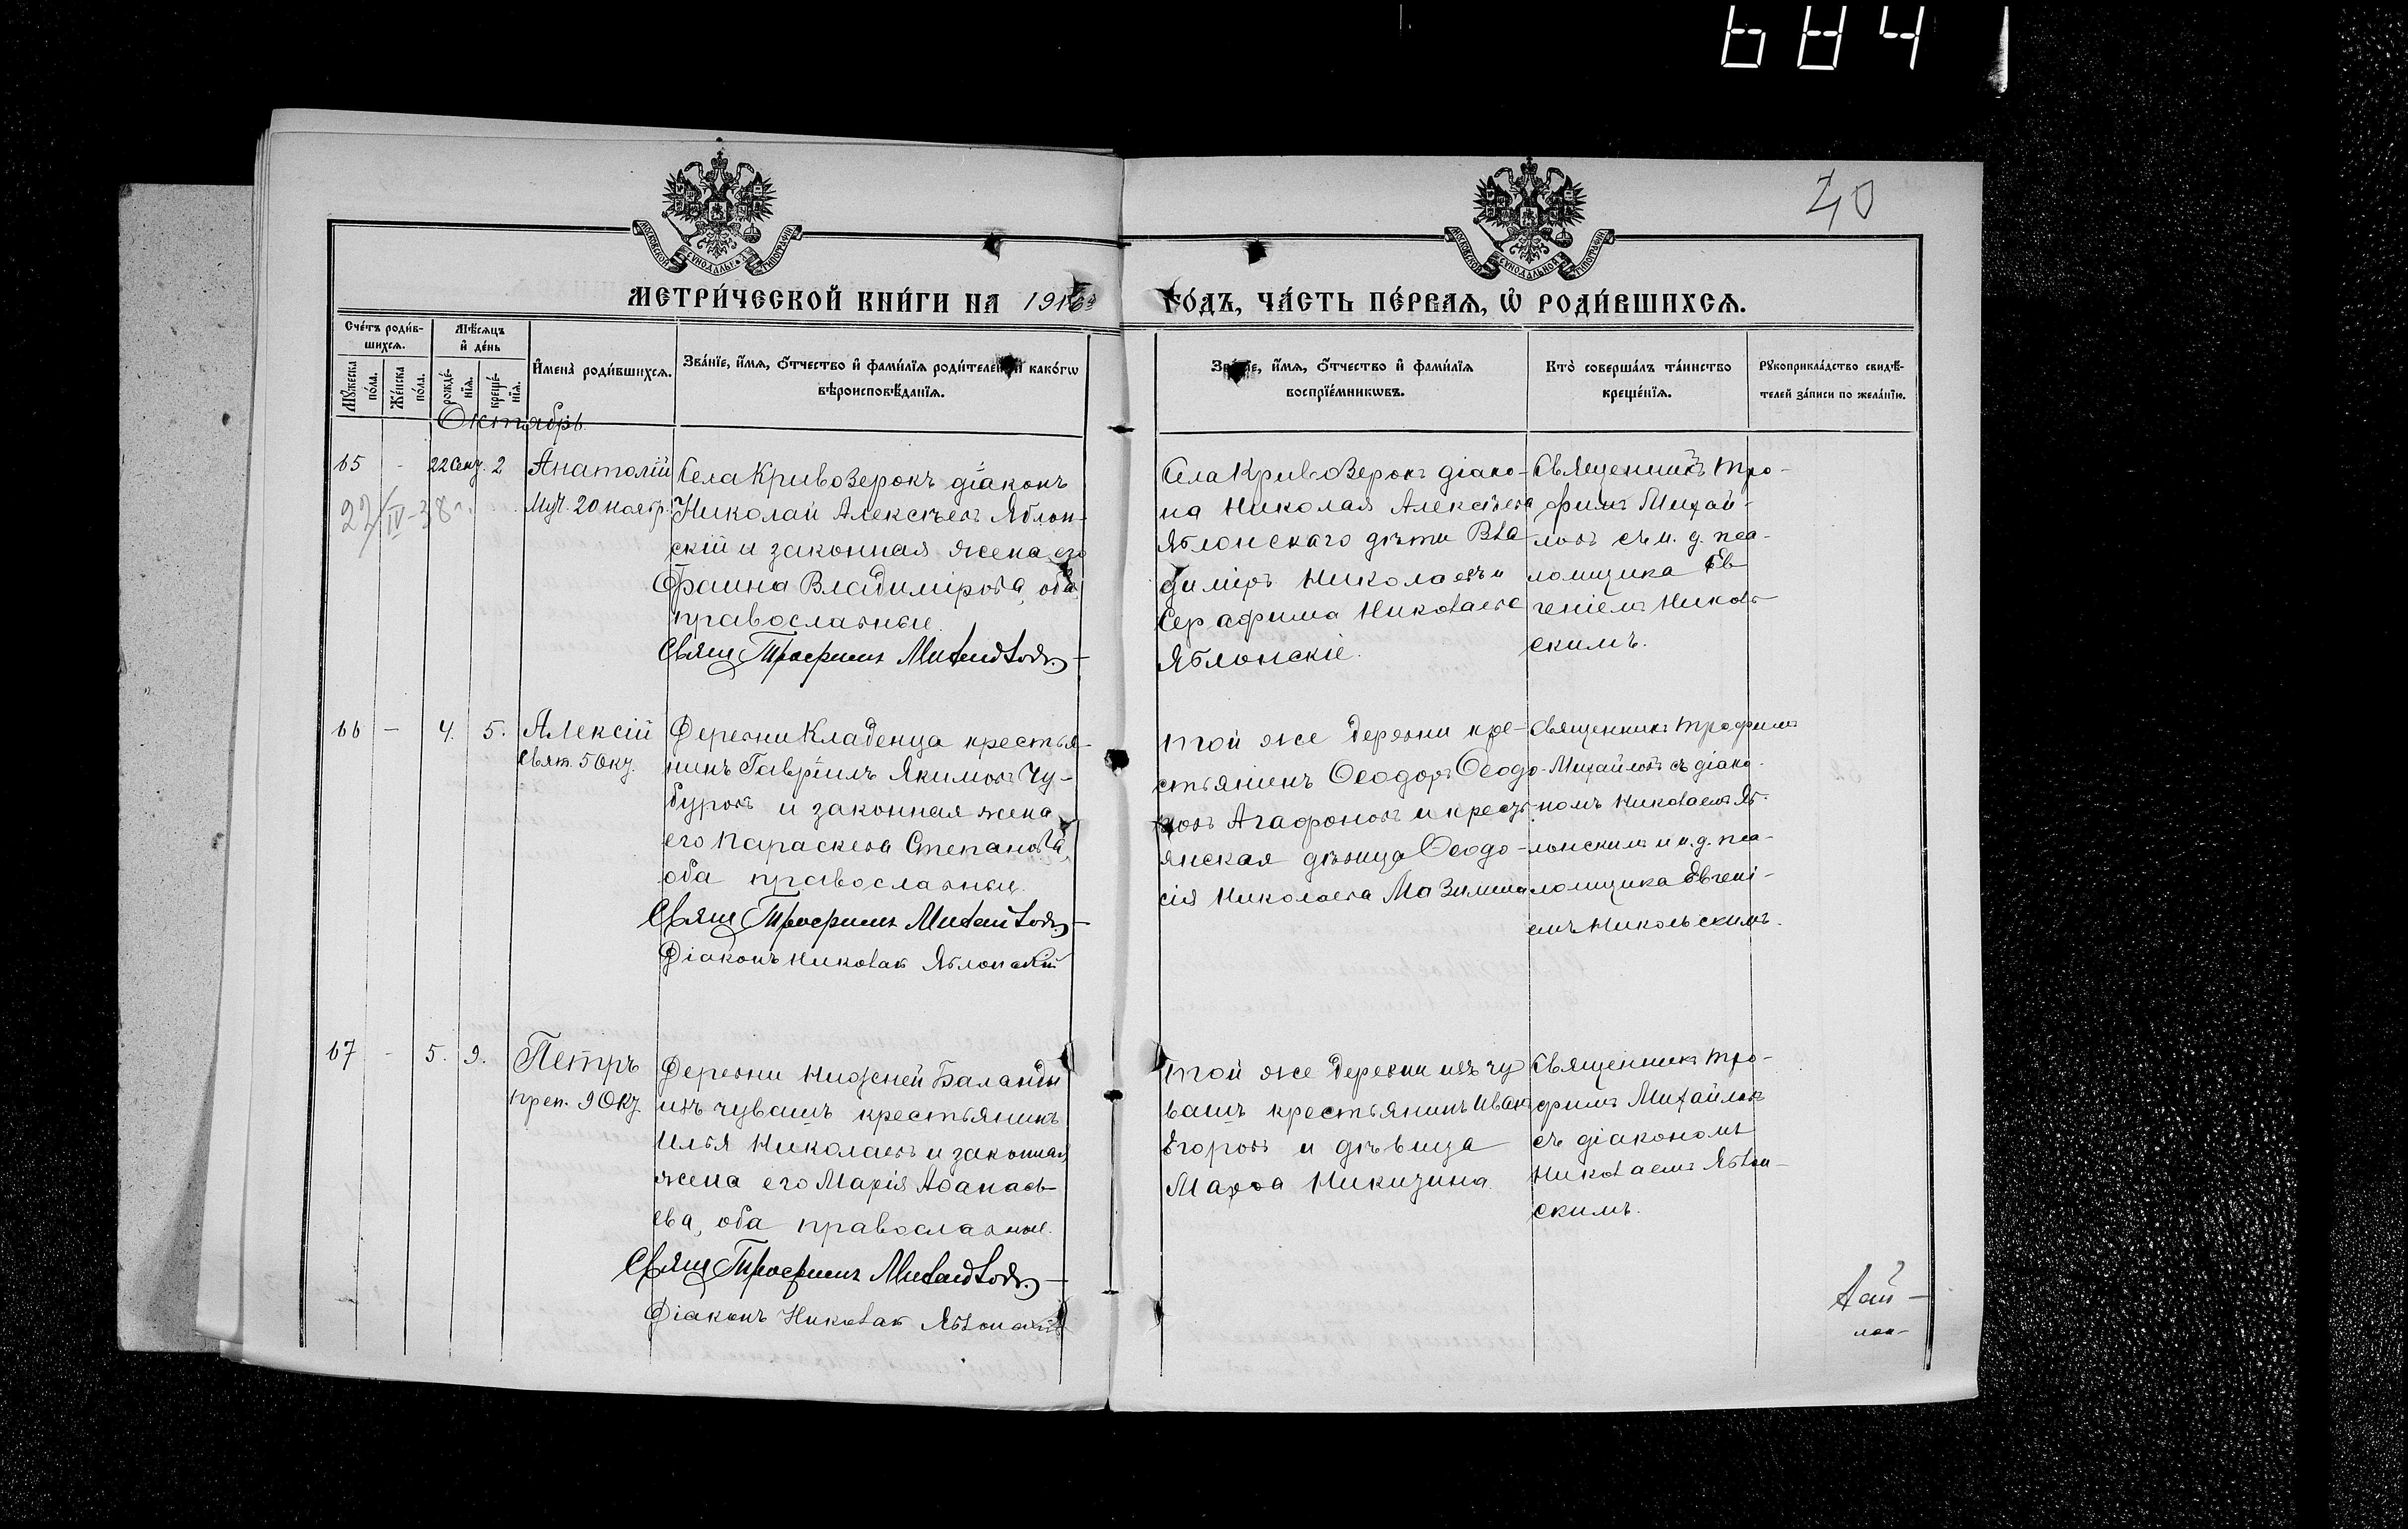 684
40
МОСКОВСКОЙ СѴНОДАЛЬНОЙ ТИПОГРАФІИ
МОСКОВСКОЙ СѴНОДАЛЬНОЙ ТИПОГРАФІИ
МЕТРИ́ЧЕСКОЙ КНИ́ГИ НА 1916й
ГО́ДЪ, ЧА́СТЬ ПЕ́РВАЯ, Ѡ РОДИ́ВШИХСЯ.
Сче́тъ роди́в-
шихся.
Мꙋ́жеска
по́ла.
Же́нска
по́ла.
Мѣ́сяцъ
и҆ де́нь
рожде́-
нїя.
креще́-
нїя.
И҆мена̀ роди́вшихся.
Зва́нїе, и҆́мя, ѻ҆́тчество и҆ фами́лїя роди́телей, и҆ како́гѡ
вѣроисповѣ́данїя.
Зва́нїе, и҆́мя, ѻ҆́тчество и҆ фами́лїя
воспрїе́мникѡвъ.
Кто̀ соверша́лъ та́инство
креще́нїя.
Рꙋкоприкла́дство свидѣ́-
телей за́писи по жела́нїю.
Октябрь
65 - 22 Сент. 2
Анатолій
Муч. 20 ноябр.
22/IV-38г.
Села Кривозерокъ діаконъ
Николай Алексѣевъ Яблон-
скій и законная жена его
Фаина Владимірова, оба
православные.
Свящ Трофимъ Михайловъ
Села Кривозерокъ діако-
на Николая Алексѣева
Яблонскаго дѣти Вла
димiръ Николаевъ и
Серафима Николаева
Яблонскіе.
Священникъ Тро-
фимъ Михай-
ловъ съ и. д. пса-
ломщика Ев
геніемъ Николь-
скимъ.
66 - 4. 5.
Алексій
Свят. 5 Окт.
Деревни Кладенца крестья-
нинъ Гавріилъ Якимовъ Чу-
буровъ и законная жена
его Параскева Степанова,
оба православные.
Свящ Трофимъ Михайловъ
Діаконъ Николай Яблонскій
Той же деревни кре-
стьянинъ Ѳеодоръ Ѳеодо-
ровъ Агафоновъ и кресть-
янская дѣвица Ѳеодо-
сія Николаева Мазилина
Священникъ Трофимъ
Михайловъ съ діако-
номъ Николаемъ Яб-
лонскимъ и и. д. пса-
ломщика Евгені-
емъ Никольскимъ.
67 - 5. 9.
Петръ
преп. 9 Окт.
Деревни Нижней Баланды
изъ чувашъ крестьянинъ
Илья Николаевъ и законная
жена его Марія Аѳанась-
ева, оба православные.
Свящ Трофимъ Михайловъ
Діаконъ Николай Яблонскій
Той же деревни изъ чу
вашъ крестьянинъ Иванъ
Егоровъ и дѣвица
Марѳа Никитина.
Священникъ Тро-
фимъ Михайловъ
съ діакономъ
Николаемъ Яблон-
скимъ.